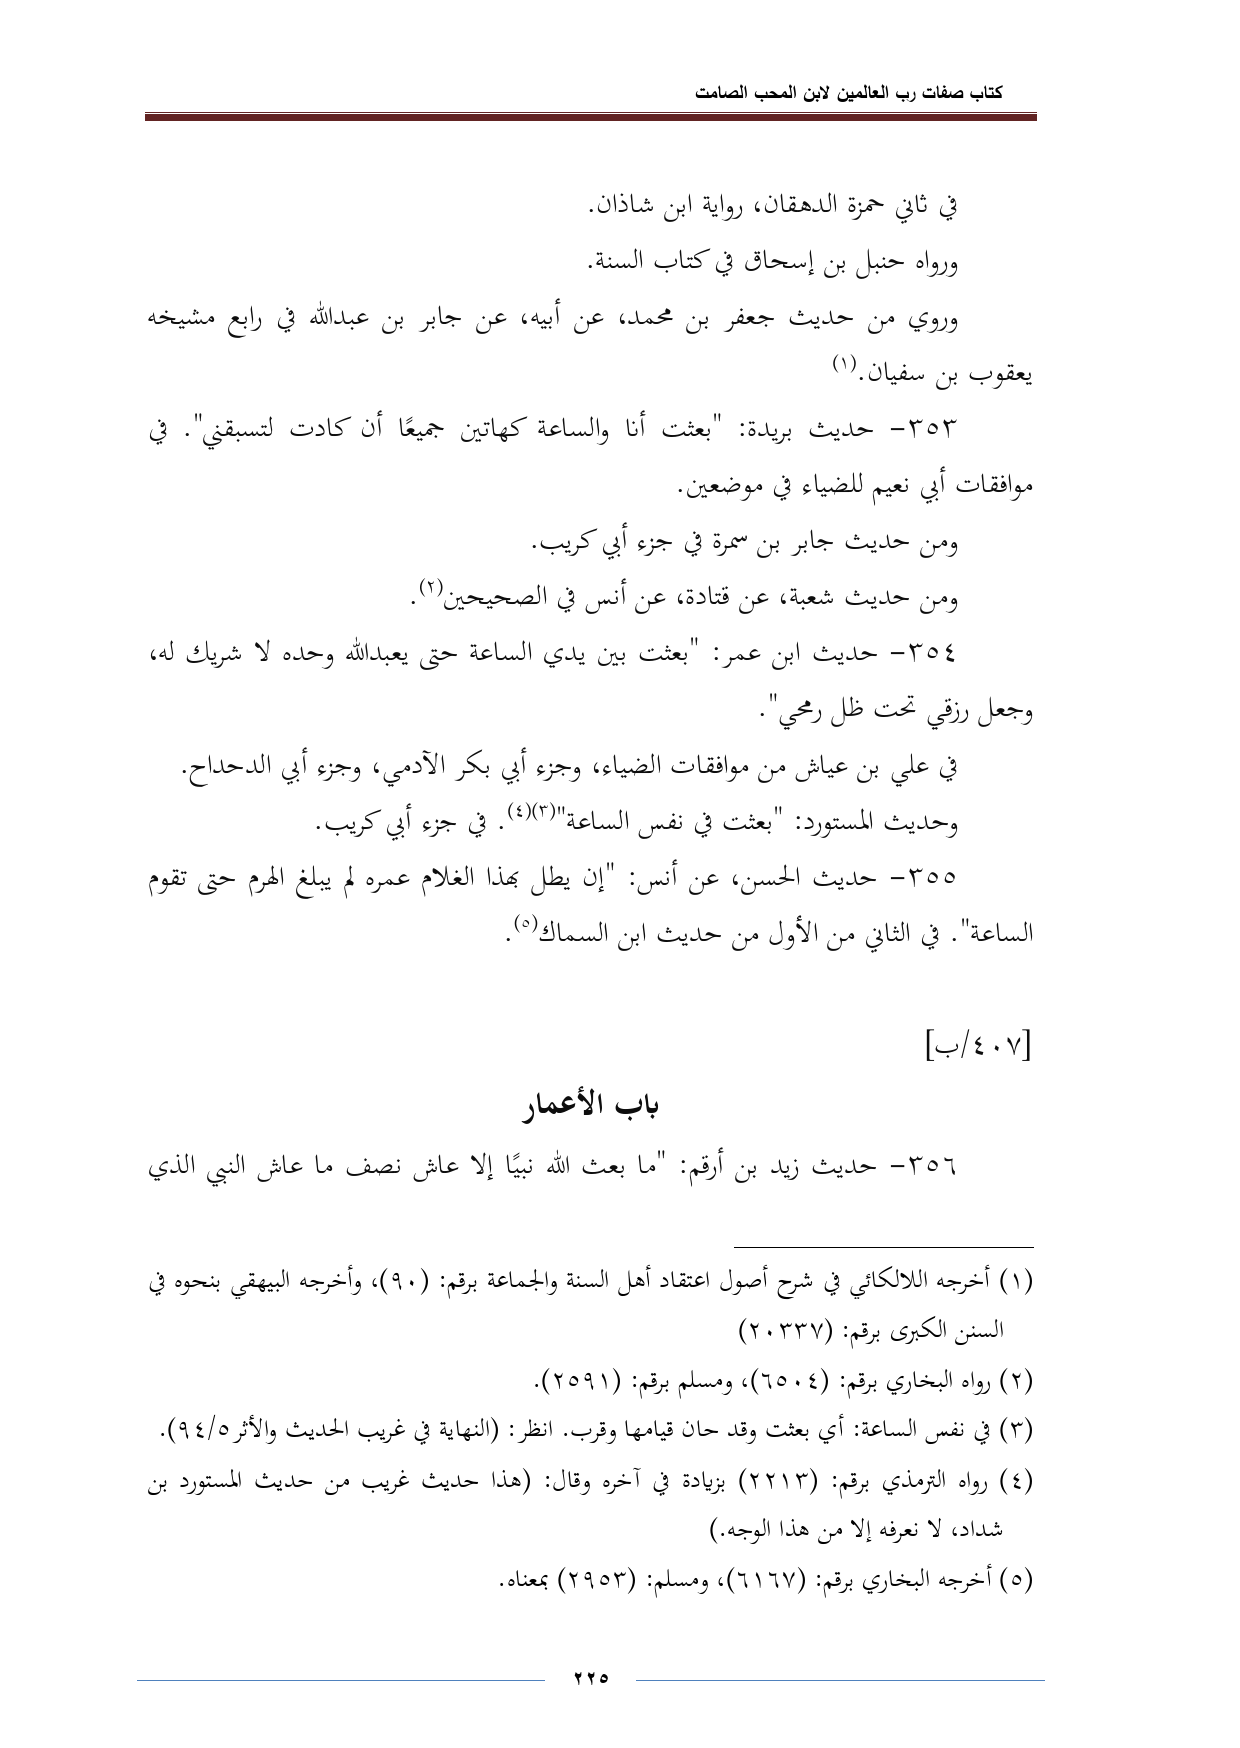 كتاب صفات رب العالمين لابن المحب الصامت
في ثاني حمزة الدهقان، رواية ابن شاذان.
ورواه حنبل بن إسحاق في كتاب السنة.
وروي من حديث جعفر بن محمد، عن أبيه، عن جابر بن عبدالله في رابع مشيخه
يعقوب بن سفيان.(١)
٣٥٣- حديث بريدة: "بعثت أنا والساعة كهاتين جميعًا أن كادت لتسبقني". في
موافقات أبي نعيم للضياء في موضعين.
ومن حديث جابر بن سمرة في جزء أبي كريب.
ومن حديث شعبة، عن قتادة، عن أنس في الصحيحين(٢).
٣٥٤- حديث ابن عمر: "بعثت بين يدي الساعة حتى يعبدالله وحده لا شريك له،
وجعل رزقي تحت ظل رمحي".
في علي بن عياش من موافقات الضياء، وجزء أبي بكر الآدمي، وجزء أبي الدحداح.
وحديث المستورد: "بعثت في نفس الساعة"(٣)(٤). في جزء أبي كريب.
٣٥٥- حديث الحسن، عن أنس: "إن يطل بهذا الغلام عمره لم يبلغ الهرم حتى تقوم
الساعة". في الثاني من الأول من حديث ابن السماك(٥).
[٤٠٧/ب]
باب الأعمار
٣٥٦- حديث زيد بن أرقم: "ما بعث الله نبيًا إلا عاش نصف ما عاش النبي الذي
(١) أخرجه اللالكائي في شرح أصول اعتقاد أهل السنة والجماعة برقم: (٩٠)، وأخرجه البيهقي بنحوه في
السنن الكبرى برقم: (٢٠٣٣٧)
(٢) رواه البخاري برقم: (٦٥٠٤)، ومسلم برقم: (٢٥٩١).
(٣) في نفس الساعة: أي بعثت وقد حان قيامها وقرب. انظر: (النهاية في غريب الحديث والأثر ٩٤/٥).
(٤) رواه الترمذي برقم: (٢٢١٣) بزيادة في آخره وقال: (هذا حديث غريب من حديث المستورد بن
شداد، لا نعرفه إلا من هذا الوجه.)
(٥) أخرجه البخاري برقم: (٦١٦٧)، ومسلم: (٢٩٥٣) بمعناه.
٢٢٥